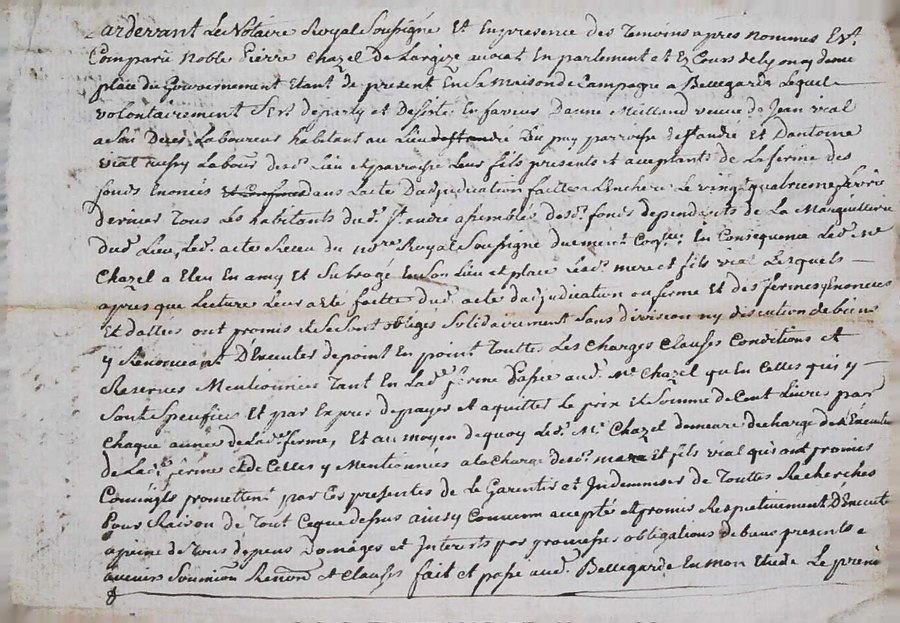 Pardevant Le Notaire Royal Soussigné Et En presence des Temoins apres nommés Est
Comparu Noble Pierre Chazel De avocat En parlement et Es Cours de Lyon y demt
place du Gouvernement Etant de present En Sa maison de Campagne a Bellegarde Lequel
volontairement S'est departy et Desisté En faveur Danne Milland veuve de Jean vial
a Son Deces Laboureur habitant au Lieu du puy parroisse de St andré Et Dantoine
vial aussy Labour. dud. Lieu et parroisse Leur fils presents et acceptants de La ferme des
fonds Enoncés dans Lacte Dadjudication faitte a Lenchere Le vingt quatrieme fevrier
dernier Tous Les habitants dud. St andre assemblés desd. fonds dependants de La Marguillerie
dud. Lieu, Led. acte Receu du nore. Royal Soussigné duement En Consequence Led. Me.
Chazel a Eleu En amy Et Subrogé En Son Lieu et place Lesd. mere et fils vial Lesquels
apres que Lecture Leur a Eté faitte dud. acte dadjudication en ferme Et des fermes Enoncées
Et dalles ont promis et Se Sont obligés Solidairement Sans division ny discution de biens
y Renonceant D'Executer de point En point Touttes Les Charges Clauses Conditions et
Reserves Mentionnées Tant En Lad. ferme Passée aud. Me. Chazel qu'En Celles qui y
Sont Specifiées Et par Exprés de payer et aquitter Le prix et Somme de Cent Livres par
Chaque année de Lad. ferme, Et au moyen de quoy Led. Me. Chazel demeure decharge de L'Execution
de Lad. ferme et de Celles y Mentionnées a la Charge desd. mere Et fils vial qui ont promis
Comme ils promettent par Ces presentes de Le Garentir et Indemniser de Touttes Recherches
Pour Raison de Tout Ceque dessus ainsy Convenu accepté et promis Respectivement D'Executer
a peine de Tous depens Domages et Interets par promesses obligations de biens presents a
avenir Soumission Renon. et Clauses fait et passé aud. Bellegarde En mon Etude Le premr